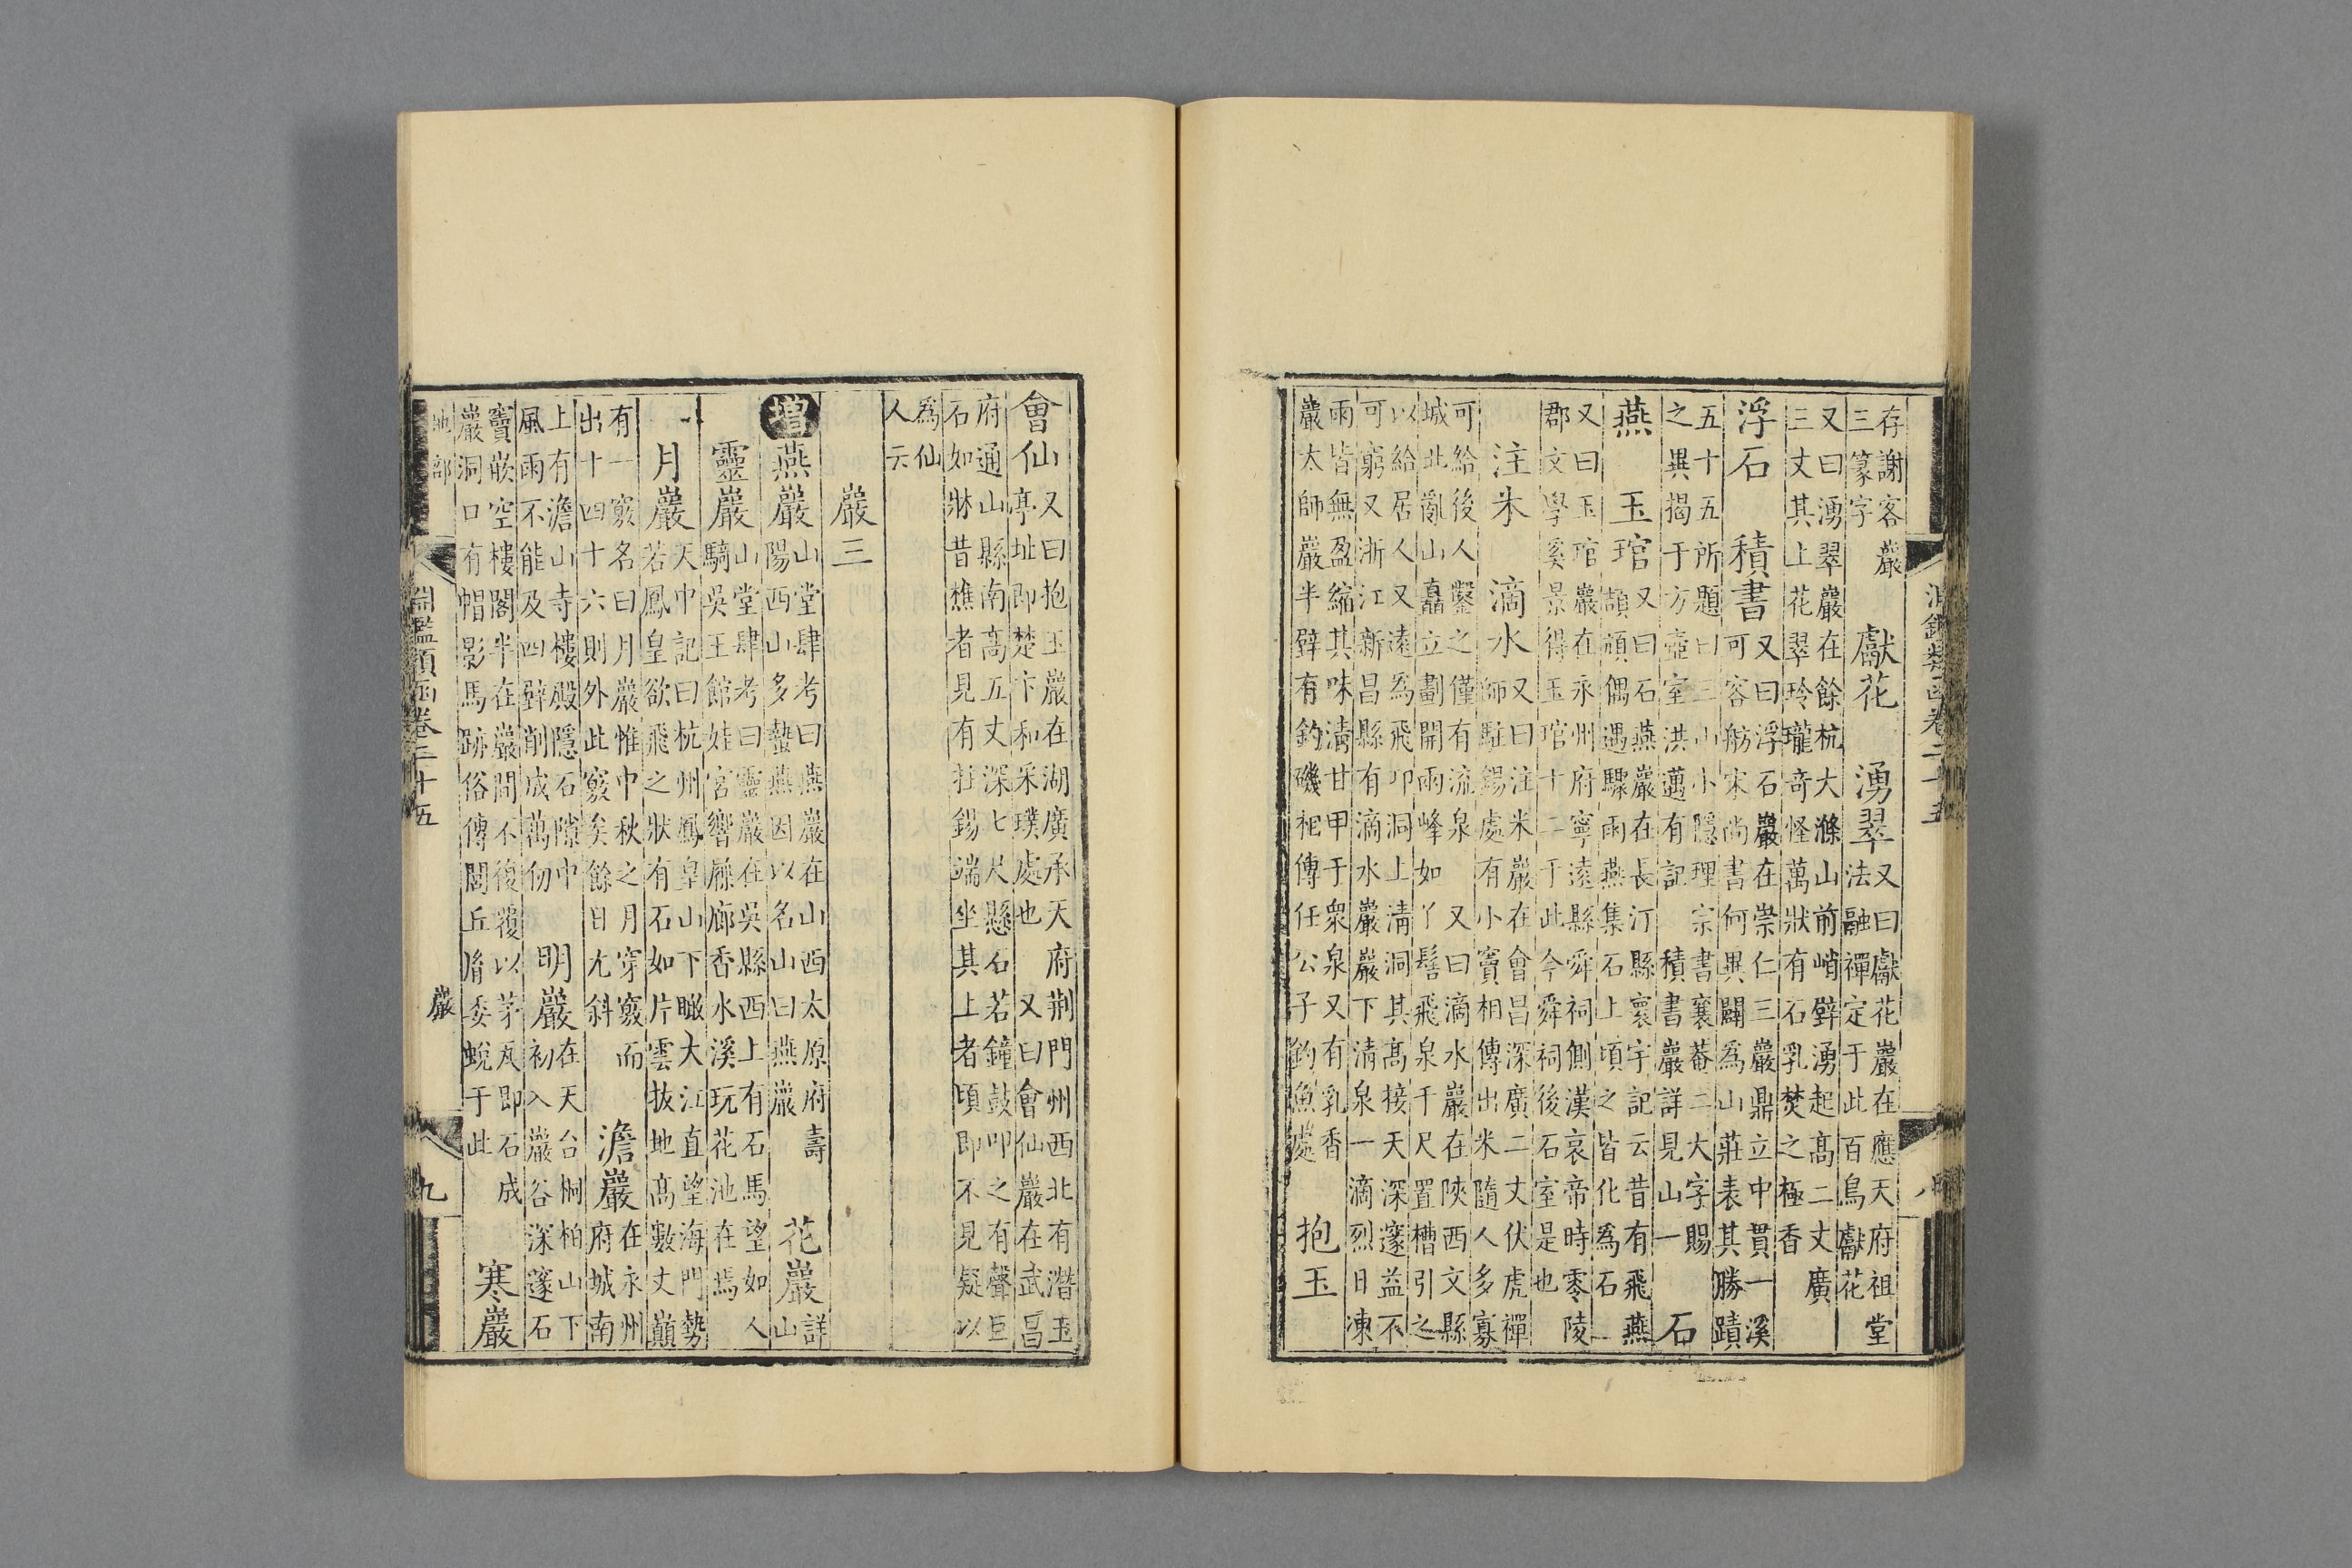 淵鑑類函卷二十五
存謝客巖
三篆字
獻花 湧翠
又曰獻花巖在應天府祖堂
法融禪定于此百鳥獻花
又曰湧翠巖在餘杭大滌山前峭壁湧起髙二丈廣
三丈其上花翠玲瓏竒怪萬狀有石乳焚之極香
浮石 積書
又曰浮石巖在崇仁三巖鼎立中貫一溪
可容舫宋尚書何異闢爲山莊表其勝蹟
五十五所題曰三山小隱理宗書襄菴二大字賜
之異揭于方壺室洪邁有記 積書巖詳見山一
石
燕 玉琯
又曰石燕巖在長汀縣寰宇記云昔有飛燕
頡頏偶遇驟雨燕集石上頃之皆化爲石
又曰玉琯巖在永州府寧遠縣舜祠側漢哀帝時零陵
郡文學奚景得玉琯十二于此今舜祠後石室是也
注米 滴水
又曰注米巖在會昌深廣二丈伏虎禪
師駐錫處有小竇相傳出米隨人多寡
可給後人鑿之僅有流泉 又曰滴水巖在陝西文縣
城北亂山矗立劃開兩峰如丫髻飛泉千尺置槽引之
以給居人又遠爲飛叩洞上清洞其髙接天深邃益不
可窮又浙江新昌縣有滴水巖巖下清泉一滴烈日凍
雨皆無盈縮其味清甘甲于衆泉又有乳香
巖太師巖半壁有釣磯相傳任公子釣魚處
抱玉
會仙
又曰抱玉巖在湖廣承天府荆門州西北有潛玉
亭址即楚卞和采璞處也 又曰會仙巖在武昌
府通山縣南髙五丈深七尺懸石若鐘鼓叩之有聲巨
石如牀昔樵者見有拄錫端坐其上者頃即不見疑以
爲仙
人云
巖三
增 燕巖
山堂肆考曰燕巖在山西太原府壽
陽西山多蟄燕因以名山曰燕巖
花巖
詳
山
一
靈巖
山堂肆考曰靈巖在吳縣西上有石馬望如人
騎吳王館娃宮響屧廊香水溪玩花池在焉
月巖
天中記曰杭州鳳皇山下瞰大江直望海門勢
若鳳皇欲飛之狀有石如片雲拔地髙數丈巔
有一竅名曰月巖惟中秋之月穿竅而
出十四十六則外此竅矣餘日尤斜
澹巖
在永州
府城南
上有澹山寺樓殿隱石隙中
風雨不能及四壁削成萬仞
明巖
在天台桐柏山下
初入巖谷深邃石
竇嵌空樓閣半在巖間不復覆以茅瓦即石成
巖洞口有帽影馬跡俗傳閭丘胤委蛻于此
寒巖
地部
淵鑑類函卷二十五
巖
九